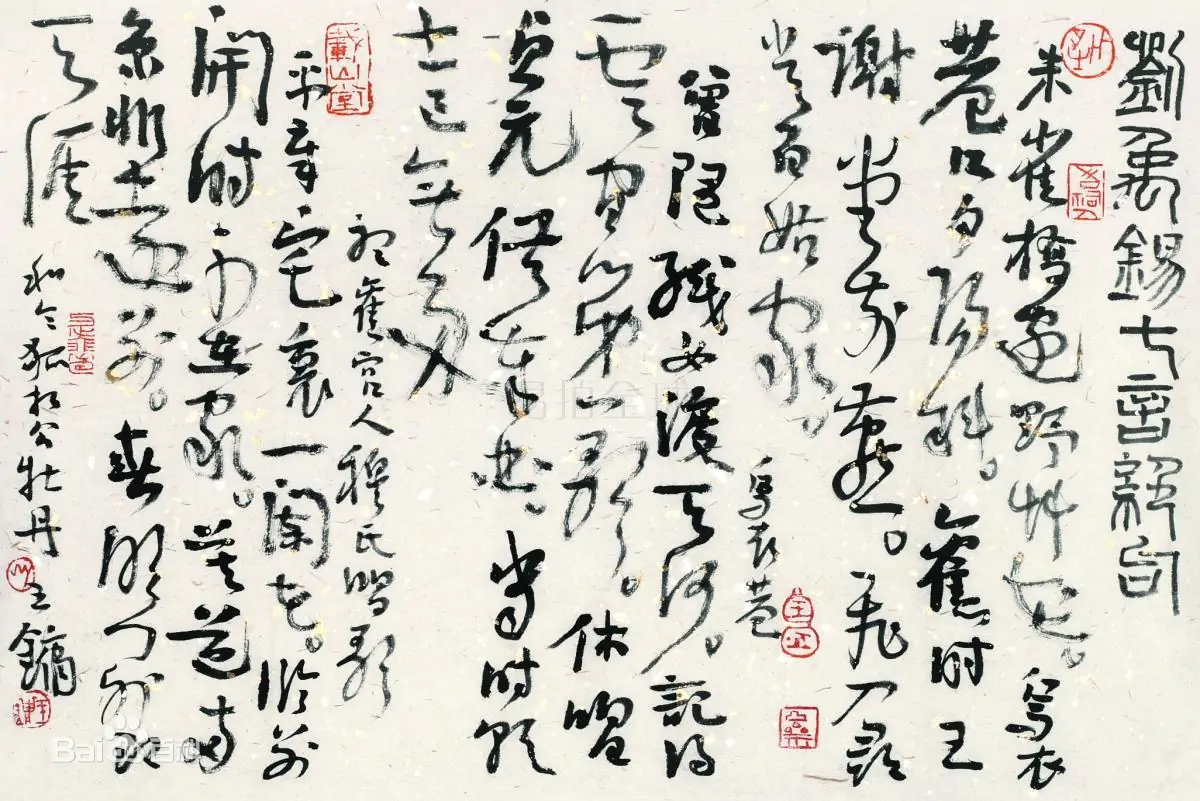 劉禹錫七言絕句
朱雀橋邊野艸花。烏衣
巷口夕陽斜。舊時王
謝堂前燕。飛入尋
常百姓家。
烏衣巷
曾隨織女渡天河。記得
雲間第一歌。休唱
貞元供奉曲。當時朝
士已無多
聽舊宮人穆氏唱歌
平章宅裏一闌花。臨到
開時不在家。莫道兩
京非遠別。春明門外即
天涯
和令狐相公牡丹
王鏞
Baidu百科